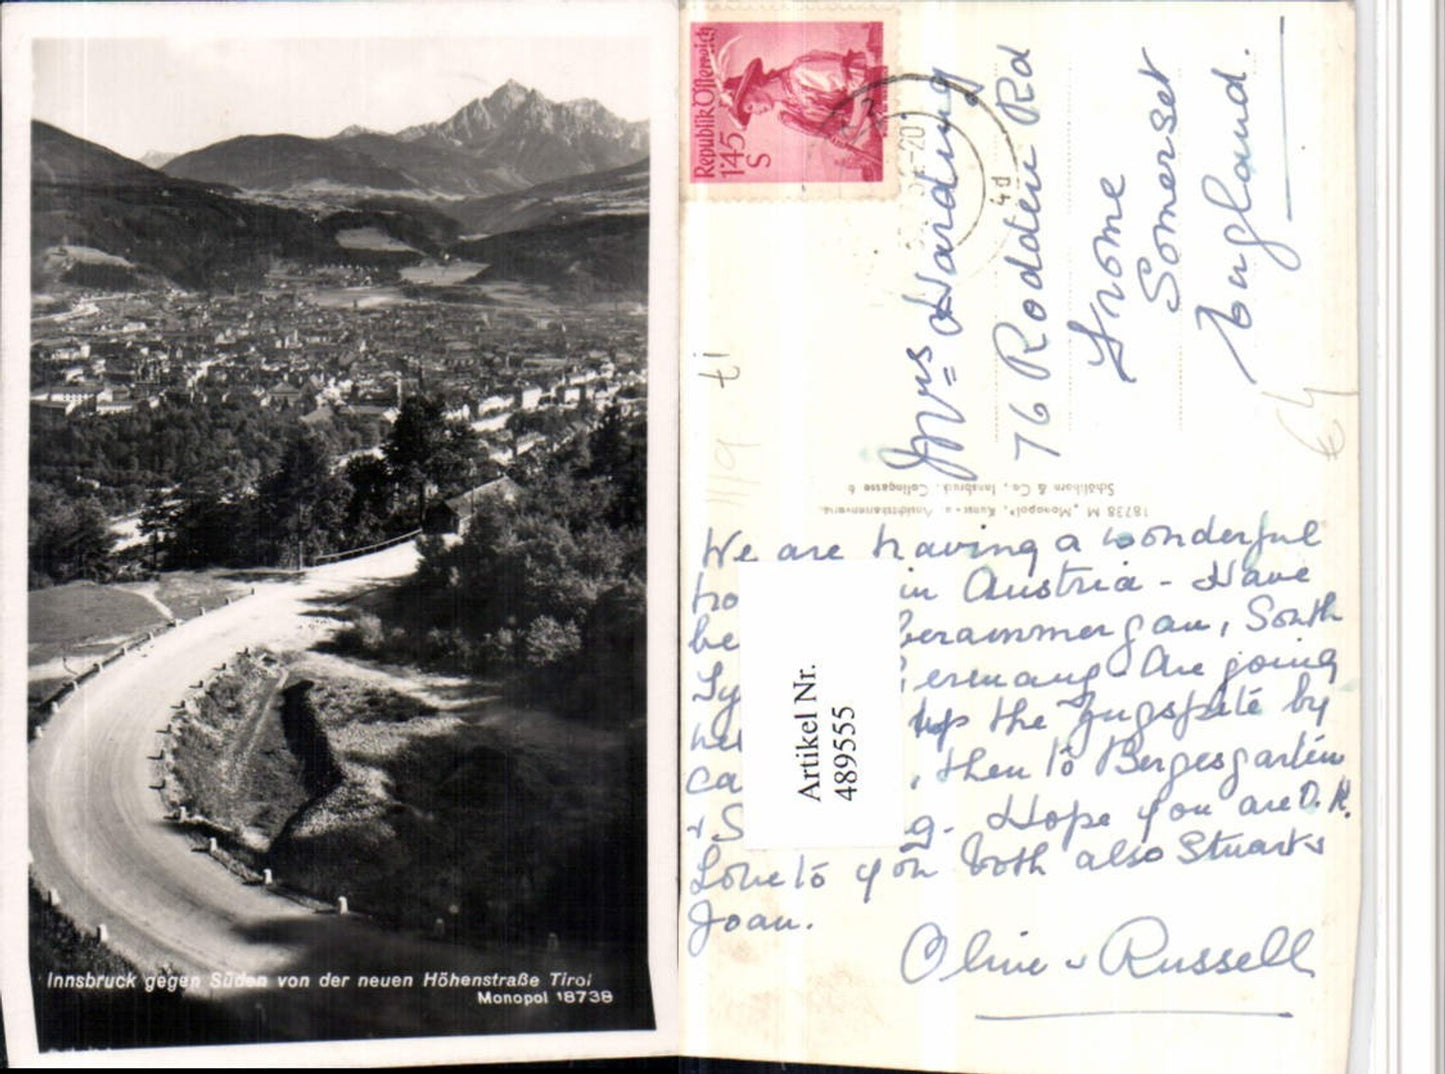 Innsbruck gegen Süden von der neuen Höhenstraße Tirol
Monopol 18738
Republik Österreich
1.45
S
4d
ti
Mrs Harding
76 Rodden Rd
Frome
Somerset
England.
€4
18738 M „Monopol", Kunst- u. Ansichtskartenverlag
Schöllhorn & Co, Innsbruck, Colingasse 6
We are having a wonderful
in Austria - Have
be berammergau, South
Ty Germany. Are going
up the Zugspite by
ca , then to Bergesgarten
+ S g. Hope you are O.K.
Love to you both also Stuart &
Joan.
Olive & Russell
Artikel Nr.
489555